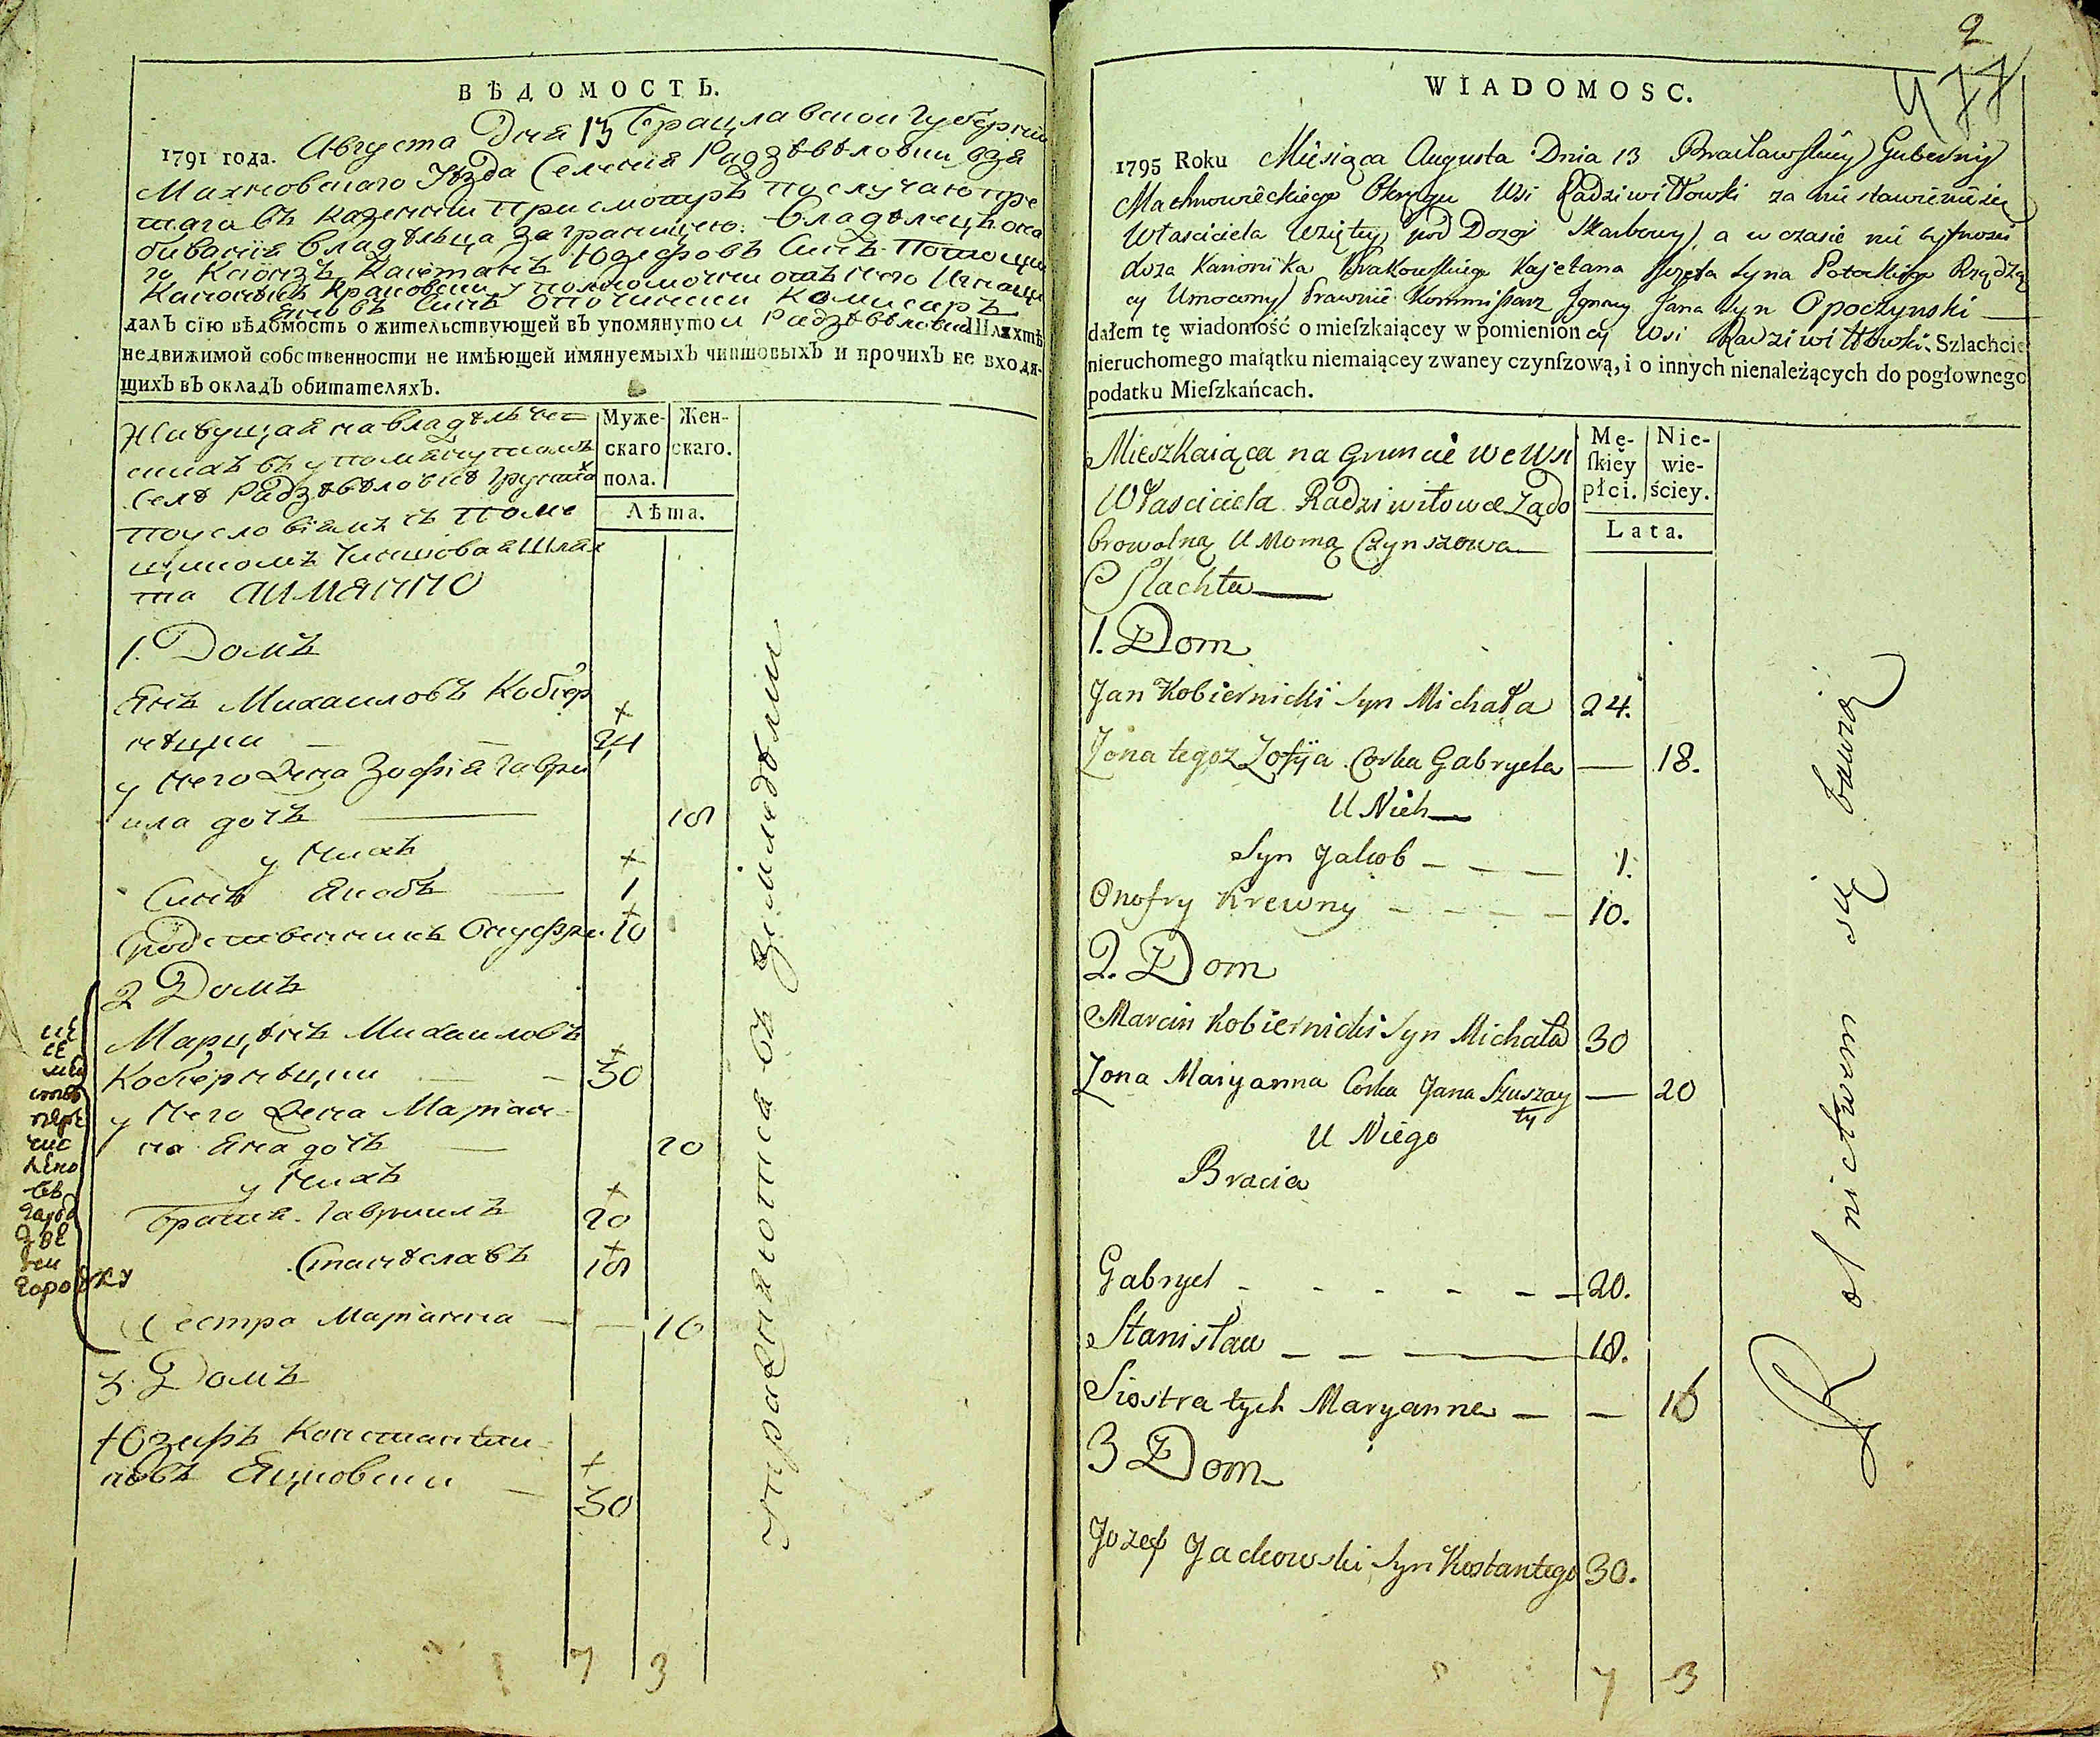 ВѢДОМОСТЬ.
1791 года. Августа Дня 13 Брацлавской Губерніи
Махновскаго Уѣзда Селенія Радзѣвѣловки взя
таго въ казенній присмотръ по случаю пре
биванія Владѣльца заграницею. Владѣлецъ она
го Ксіонзъ Каетанъ Юзефовъ Синъ Потоцки
Канонѣкъ Краковски уполномочни отъ него Игнаци
Яновъ Синъ Опочински Комисаръ
далъ сію вѣдомость о жительствующей въ упомянутои Радзѣвѣловки Шляхтѣ
недвижимой собственности не имѣющей имянуемыхъ чиншовыхъ и прочихъ не входя-
щихъ въ окладъ обитателяхъ.
Живущая на владѣлче
скихъ въ упомянутомъ
Селѣ Радзѣвѣловкѣ Грунтах
по условіямъ съ поме
щикомъ Чиншовая Шлях
та АИМЯННО
Муже- Жен-
скаго скаго.
пола.
Лѣта.
1. Домъ
Янъ Михаиловъ Кобіер
нѣцки 24
у Него Жена Зофія Гаври
ила дочь 18
у Нихъ
Синъ Якобъ 1
Сродственникъ Онуфри 10
2 Домъ
Марцѣнъ Михаиловъ
Кобіернѣцки 30
у Него Жена Маріан
на Яна дочь 20
у Нихъ
Братя Гавриилъ 20
Станѣславъ 18
Сестра Маріанна 16
3 Домъ
Юзефъ Константи
новъ Яцковски 30
7 3
упражняются въ земледѣліи
2
477
WIADOMOSC.
1795 Roku Miesiąca Augusta Dnia 13 Bracławskiey Gubernij
Machnowieckiego Okręgu Wsi Radziwiłłowki za nie stawieniem się
Własciciela Wziętey pod Dozor Skarbowy, a w czasie nie bytnosci
Xdza Kanonika Krakowskiego Kajetana Jozefa Syna Potockiego Rządzą
cy Umocowany Prawnie Kommissarz Ignacy Jana Syn Opoczynski
dałem tę wiadomość o mieſzkaiącey w pomienioney Wsi Radziwiłłowki Szlachcie
nieruchomego maiątku niemaiącey zwaney czynſzową, i o innych nienależących do pogłownego
podatku Mieſzkańcach.
Mieszkaiąca na Gruncie we Wsi
Własciciela Radziwiłowce Za do
browolną Umową Czynszowa
Slachta
Mę- Nie-
ſkiey wie-
płci. ściey.
Lata.
1. Dom
Jan Kobiernicki Syn Michała 24.
Zona tegoz Zofija Corka Gabryela — 18.
U Nich
Syn Jakob 1.
Onofry Krewny 10.
2. Dom
Marcin Kobiernicki Syn Michała 30
Zona Maryanna Corka Jana Szuszay
ty — 20
U Niego
Bracia
Gabryel 20.
Stanisław 18.
Siostra tych Maryanna — 16
3 Dom
Jozef Jackowski Syn Kostantego 30.
7 3
Rolnictwem się bawią